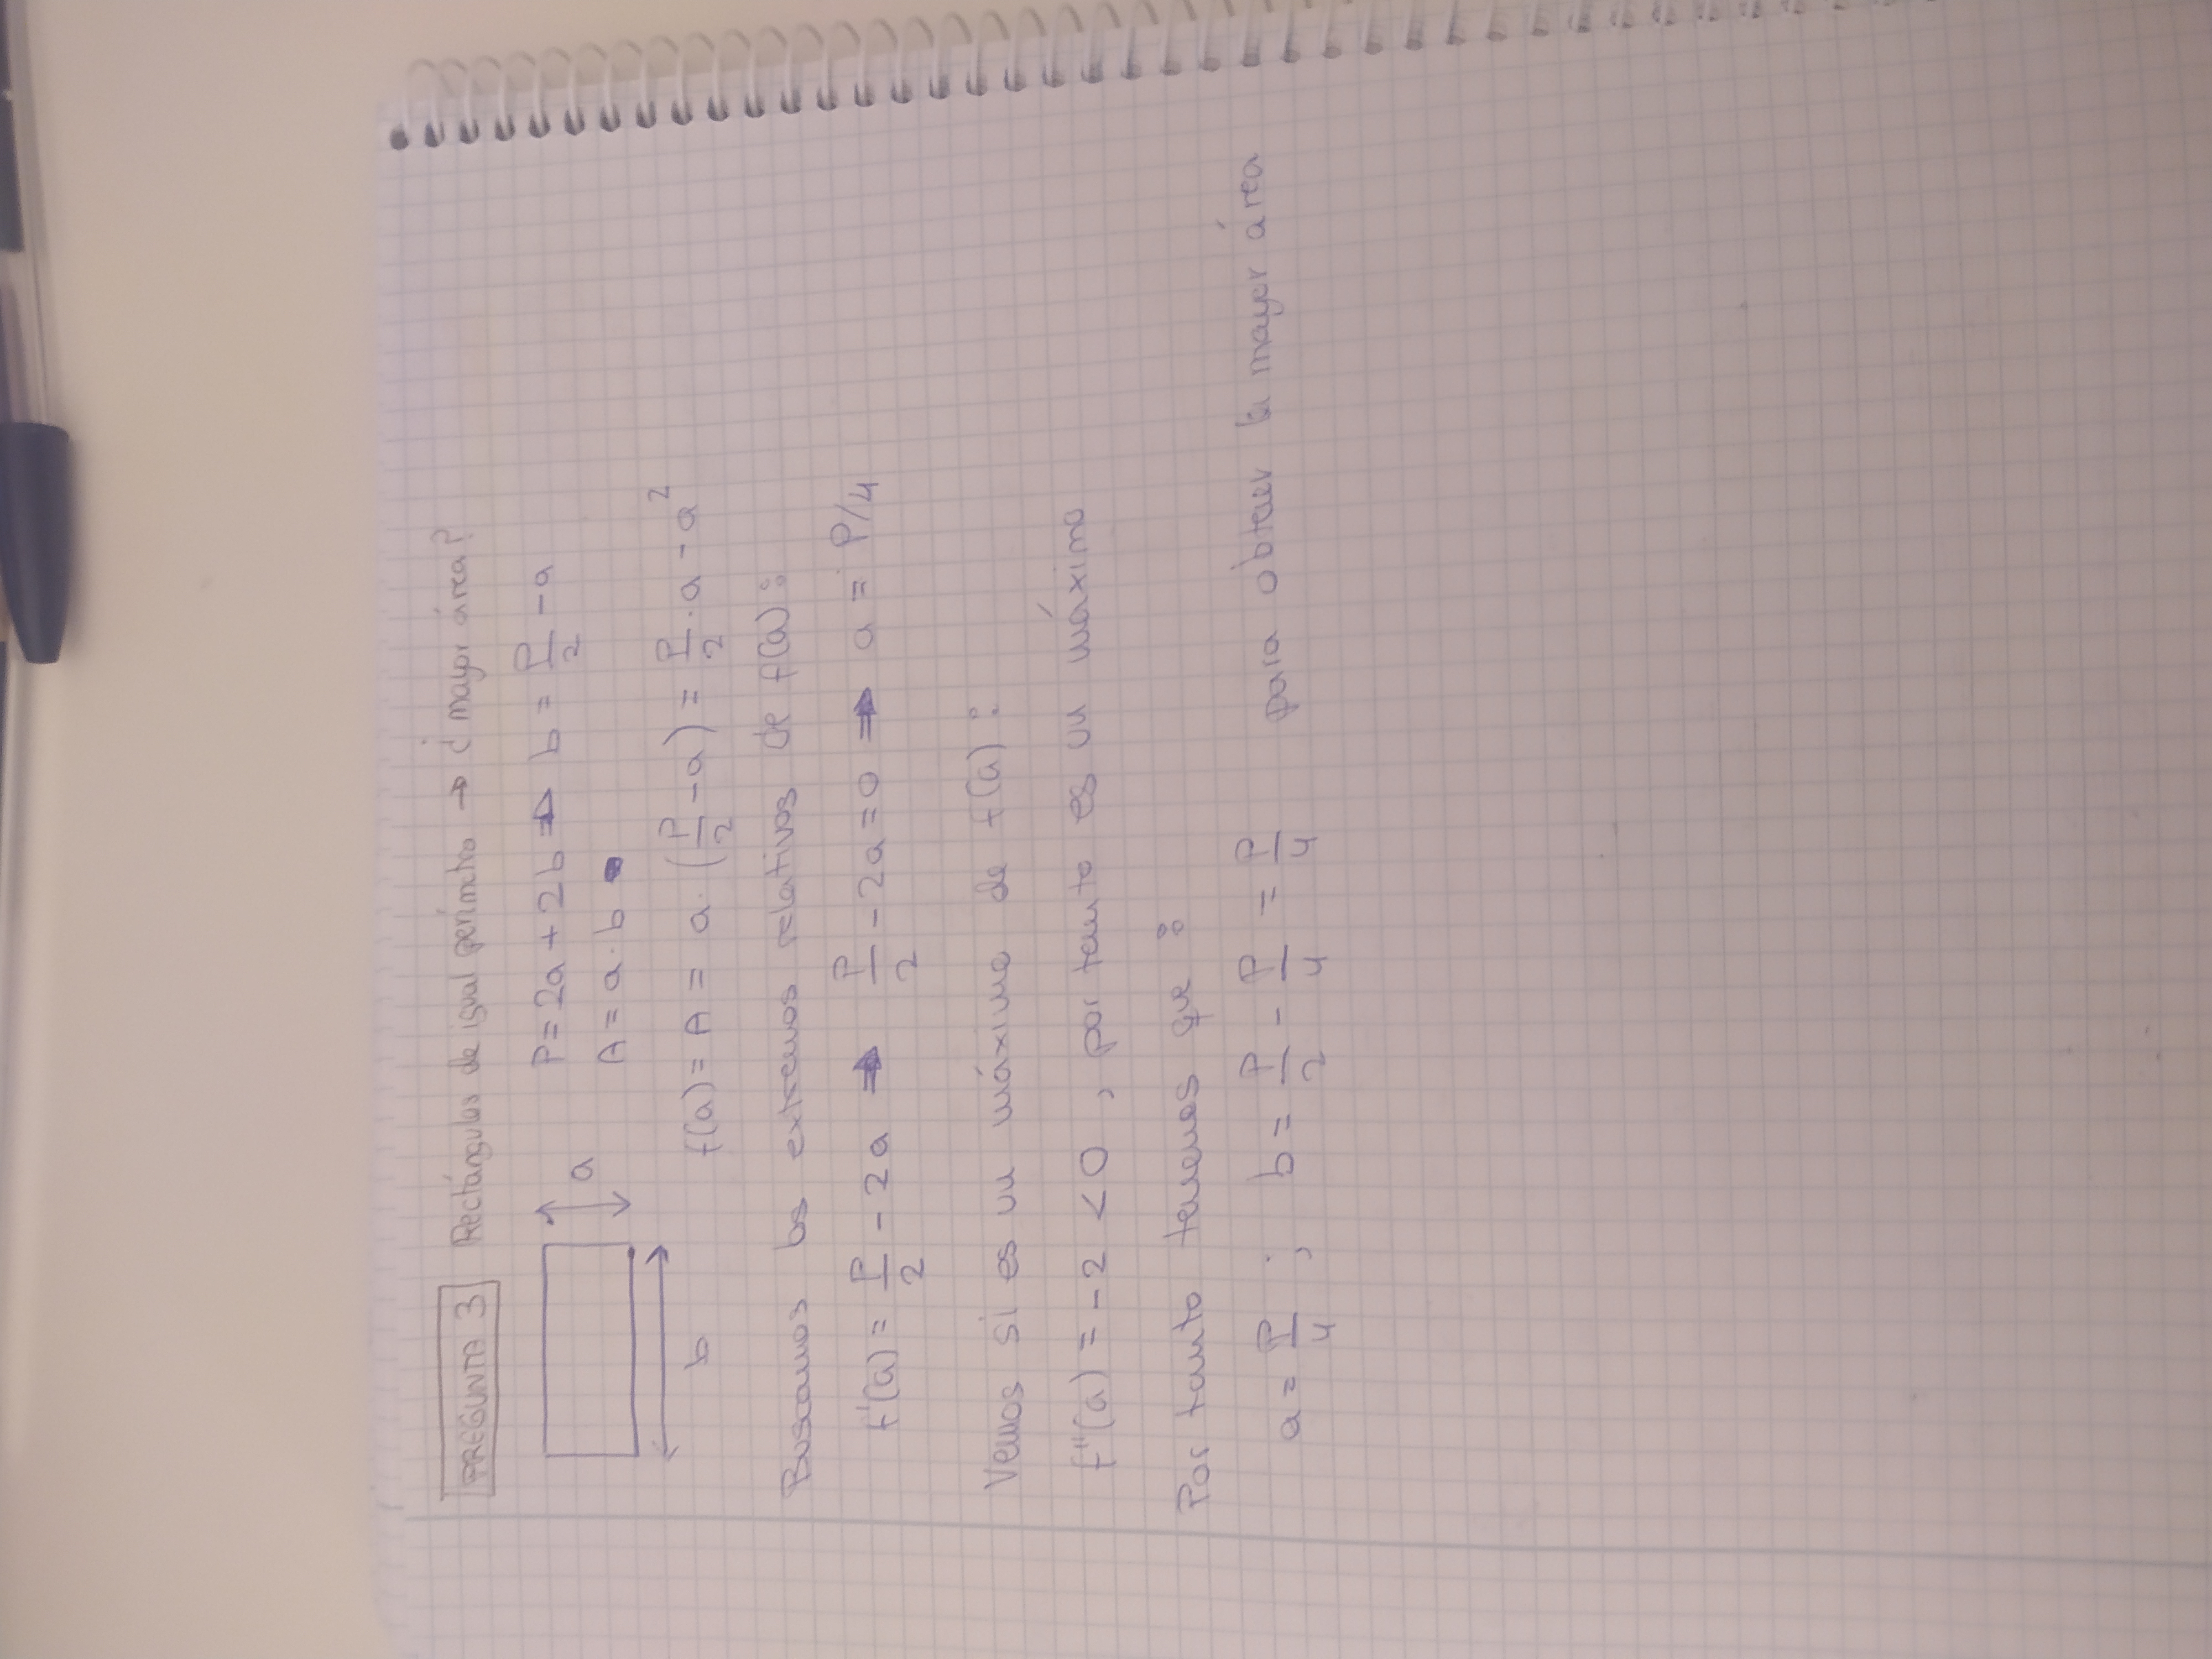 PREGUNTA 3 Rectángulos de igual perímetro → ¿mayor área?
P = 2a + 2b ⇒ b = P/2 - a
a
A = a · b
b
f(a) = A = a · (P/2 - a) = P/2 · a - a²
Buscamos los extremos relativos de f(a):
f'(a) = P/2 - 2a ⇒ P/2 - 2a = 0 ⇒ a = P/4
Vemos si es un máximo de f(a):
f''(a) = -2 < 0, por tanto es un máximo
Por tanto tenemos que:
a = P/4 ; b = P/2 - P/4 = P/4 para obtener la mayor área